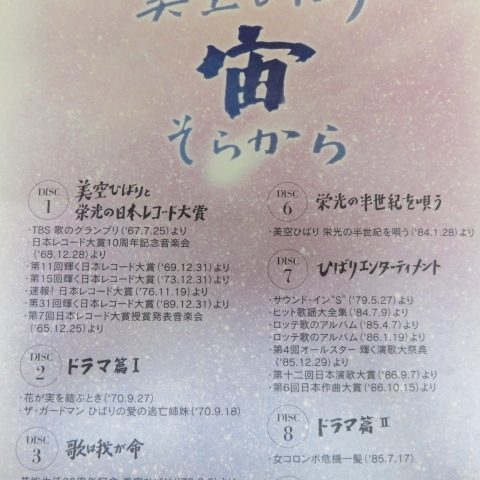 美空ひばり
宙
そらから
DISC 1
美空ひばりと
栄光の日本レコード大賞
・TBS 歌のグランプリ('67.7.25)より
・日本レコード大賞10周年記念音楽会
('68.12.28)より
・第11回輝く日本レコード大賞('69.12.31)より
・第15回輝く日本レコード大賞('73.12.31)より
・速報！日本レコード大賞('76.11.19)より
・第31回輝く日本レコード大賞('89.12.31)より
・第7回日本レコード大賞授賞発表音楽会
('65.12.25)より
DISC 2
ドラマ篇 I
・花が実を結ぶとき('70.9.27)
・ザ・ガードマン ひばりの愛の逃亡姉妹('70.9.18)
DISC 3
歌は我が命
DISC 6
栄光の半世紀を唄う
・美空ひばり 栄光の半世紀を唄う('84.1.28)より
DISC 7
ひばりエンターティメント
・サウンド・イン"S"('79.5.27)より
・ヒット歌謡大全集('84.7.9)より
・ロッテ歌のアルバム('85.4.7)より
・ロッテ歌のアルバム('86.1.19)より
・第4回オールスター 輝く演歌大祭典
('85.12.29)より
・第十二回日本演歌大賞('86.9.7)より
・第6回日本作曲大賞('86.10.15)より
DISC 8
ドラマ篇 II
・女コロンボ危機一髪('85.7.17)